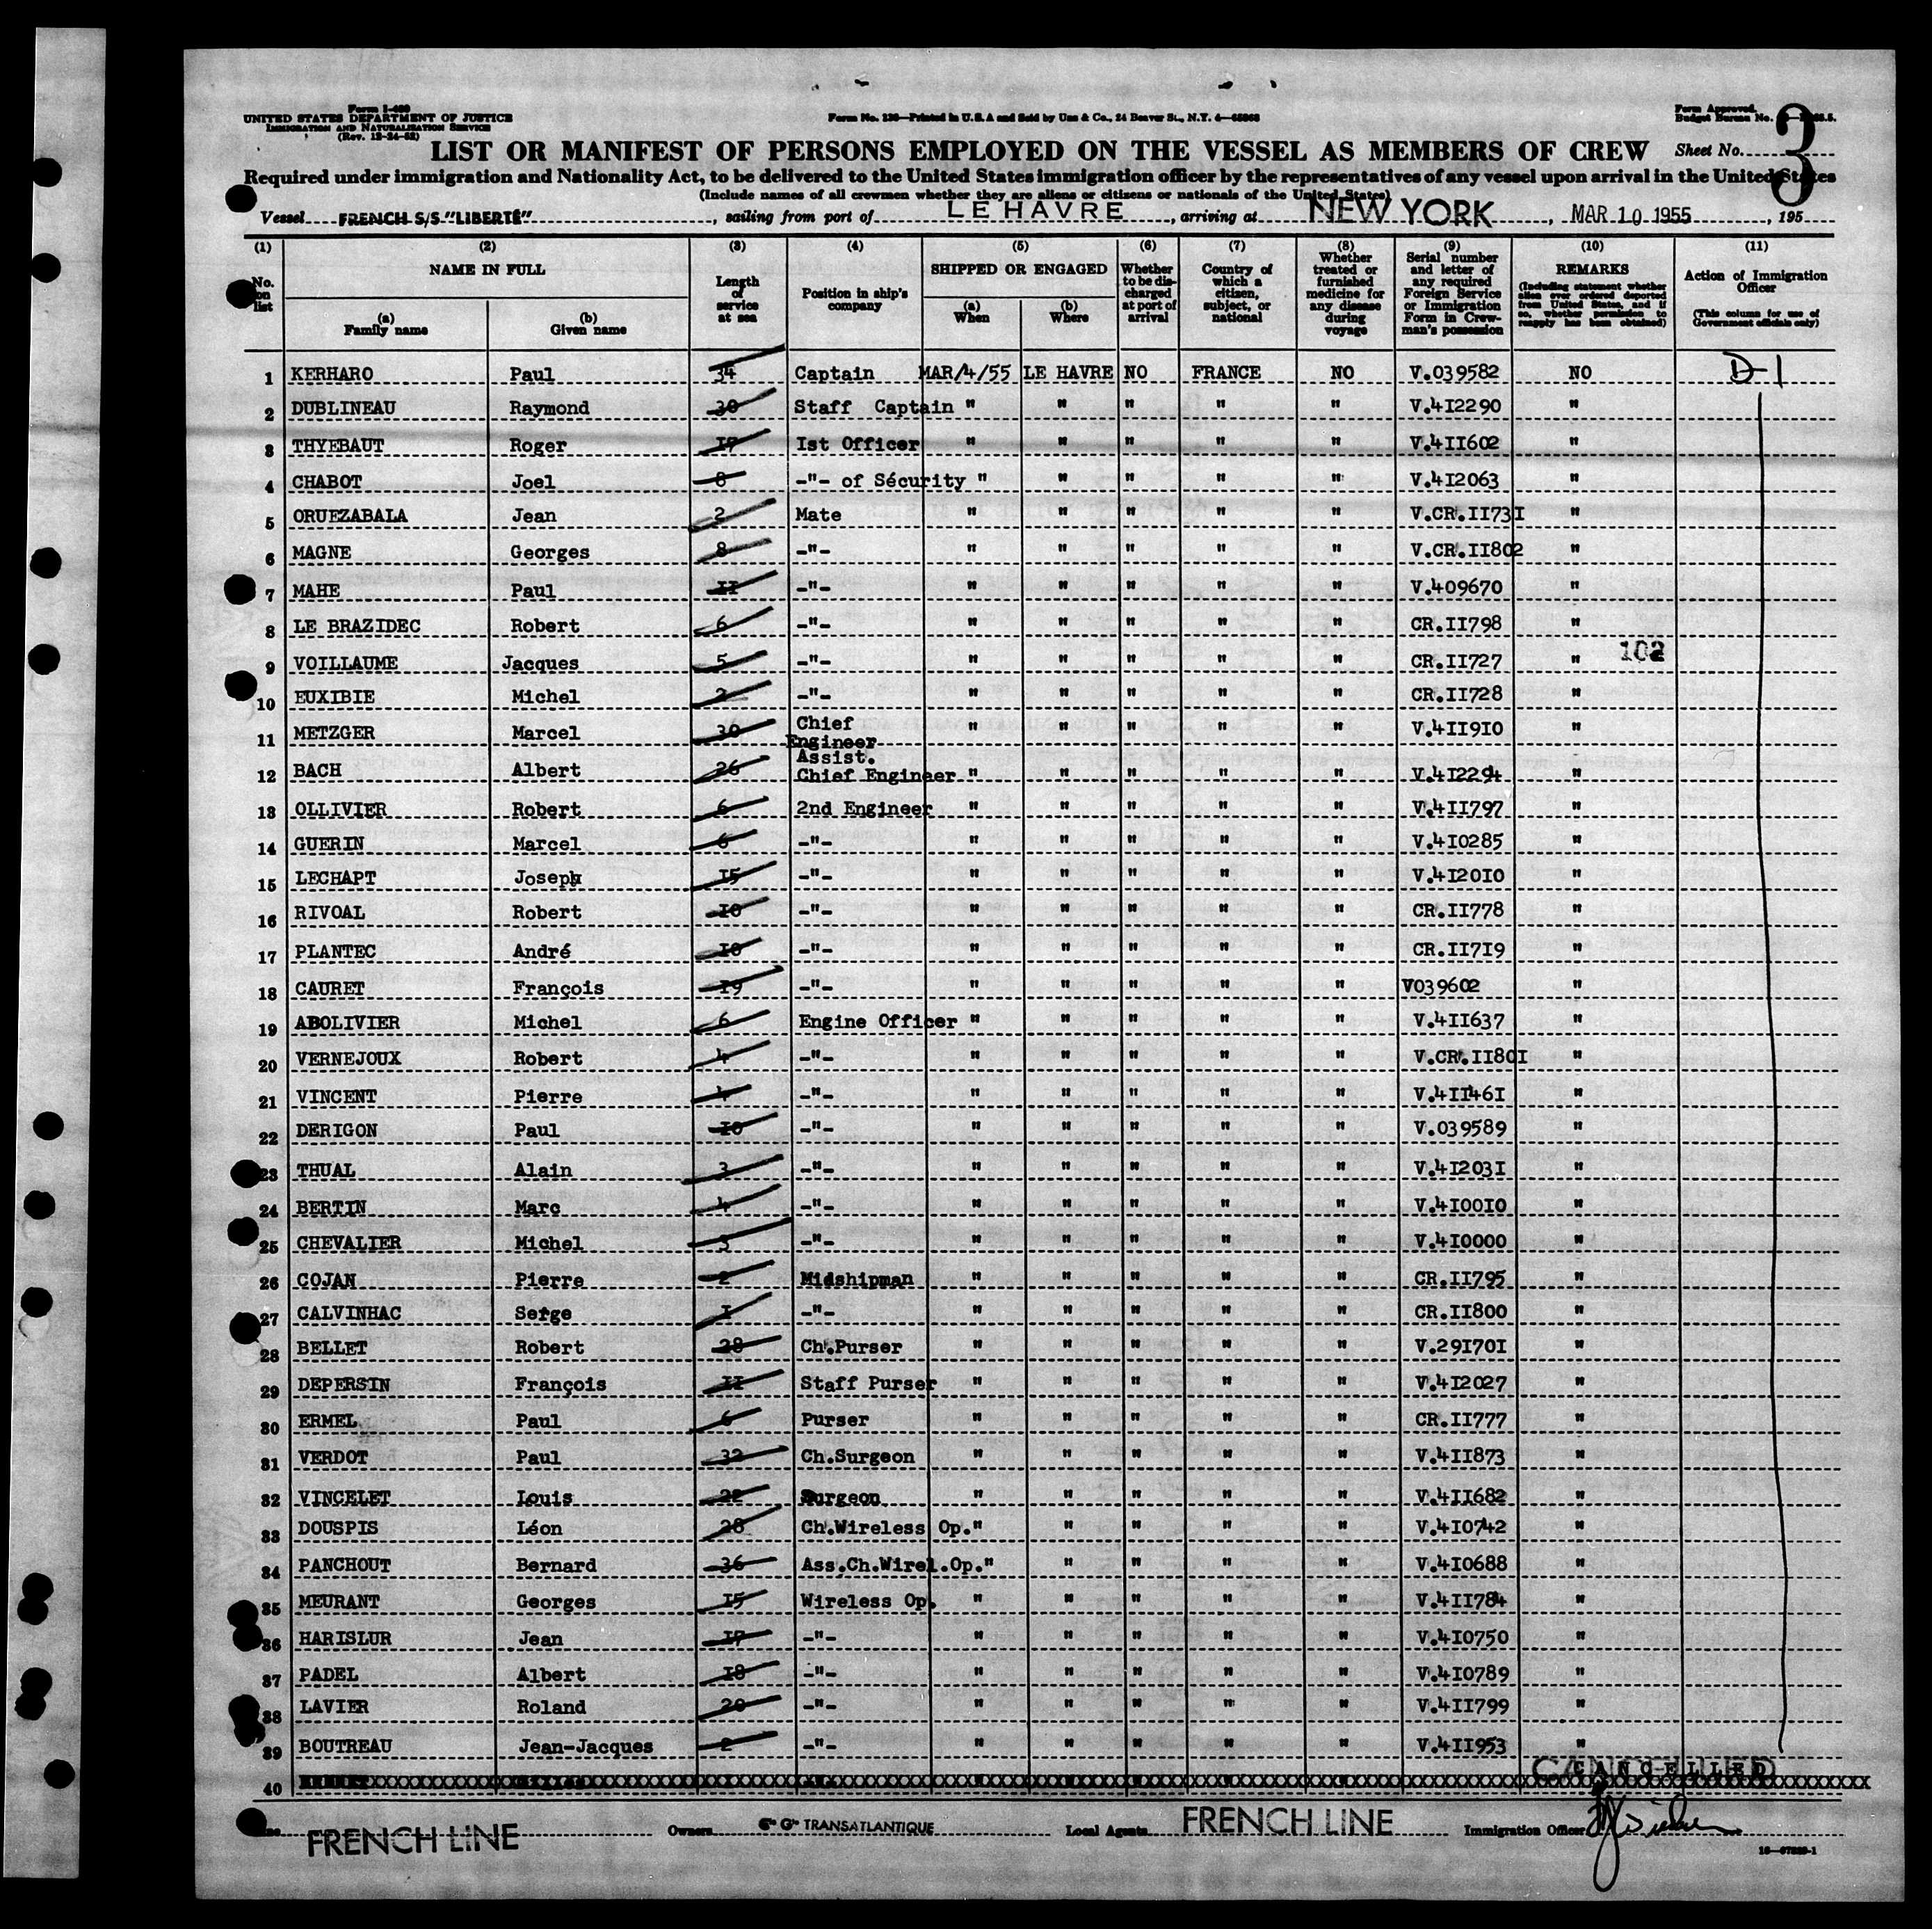 Form I-489
UNITED STATES DEPARTMENT OF JUSTICE
IMMIGRATION AND NATURALIZATION SERVICE
(Rev. 12-24-52)
Form No. 136—Printed in U.S.A and Sold by Unz & Co., 24 Beaver St., N.Y. 4—
Form Approved.
Budget Bureau No.
LIST OR MANIFEST OF PERSONS EMPLOYED ON THE VESSEL AS MEMBERS OF CREW Sheet No. 3
Required under immigration and Nationality Act, to be delivered to the United States immigration officer by the representatives of any vessel upon arrival in the United States
(Include names of all crewmen whether they are aliens or citizens or nationals of the United States)
Vessel FRENCH S/S "LIBERTÉ", sailing from port of LE HAVRE, arriving at NEW YORK, MAR 10 1955, 195
(1) (2) (3) (4) (5) (6) (7) (8) (9) (10) (11)
No. on list
NAME IN FULL
(a) Family name
(b) Given name
Length of service at sea
Position in ship's company
SHIPPED OR ENGAGED
(a) When
(b) Where
Whether to be discharged at port of arrival
Country of which a citizen, subject, or national
Whether treated or furnished medicine for any disease during voyage
Serial number and letter of any required Foreign Service or Immigration Form in Crewman's possession
REMARKS
(Including statement whether alien ever ordered deported from United States, and if so, whether permission to reapply has been obtained)
Action of Immigration Officer
(This column for use of Government officials only)
1 KERHARO Paul 34 Captain MAR/4/55 LE HAVRE NO FRANCE NO V.039582 NO D-1
2 DUBLINEAU Raymond 30 Staff Captain " " " " " V.4I2290 "
3 THYEBAUT Roger I7 Ist Officer " " " " " V.4II602 "
4 CHABOT Joel 8 -"- of Sécurity " " " " " V.4I2063 "
5 ORUEZABALA Jean 2 Mate " " " " " V.CR.II73I "
6 MAGNE Georges 8 -"- " " " " " V.CR.II802 "
7 MAHE Paul II -"- " " " " " V.409670 "
8 LE BRAZIDEC Robert 6 -"- " " " " " CR.II798 "
9 VOILLAUME Jacques 5 -"- " " " " " CR.II727 " 102
10 EUXIBIE Michel 2 -"- " " " " " CR.II728 "
11 METZGER Marcel 30 Chief Engineer " " " " " V.4II9I0 "
12 BACH Albert 26 Assist. Chief Engineer " " " " " V.4I2294 "
13 OLLIVIER Robert 6 2nd Engineer " " " " " V.4II797 "
14 GUERIN Marcel 6 -"- " " " " " V.4I0285 "
15 LECHAPT Joseph I5 -"- " " " " " V.4I20I0 "
16 RIVOAL Robert I0 -"- " " " " " CR.II778 "
17 PLANTEC André I0 -"- " " " " " CR.II7I9 "
18 CAURET François I9 -"- " " " " " V039602 "
19 ABOLIVIER Michel 6 Engine Officer " " " " " V.4II637 "
20 VERNEJOUX Robert 4 -"- " " " " " V.CR.II80I "
21 VINCENT Pierre 4 -"- " " " " " V.4II46I "
22 DERIGON Paul I0 -"- " " " " " V.039589 "
23 THUAL Alain 3 -"- " " " " " V.4I203I "
24 BERTIN Marc 4 -"- " " " " " V.4I00I0 "
25 CHEVALIER Michel 3 -"- " " " " " V.4I0000 "
26 COJAN Pierre 2 Midshipman " " " " " CR.II795 "
27 CALVINHAC Serge I -"- " " " " " CR.II800 "
28 BELLET Robert 28 Ch.Purser " " " " " V.29I70I "
29 DEPERSIN François II Staff Purser " " " " " V.4I2027 "
30 ERMEL Paul 6 Purser " " " " " CR.II777 "
31 VERDOT Paul 32 Ch.Surgeon " " " " " V.4II873 "
32 VINCELET Louis 22 Surgeon " " " " " V.4II682 "
33 DOUSPIS Léon 28 Ch.Wireless Op. " " " " " V.4I0742 "
34 PANCHOUT Bernard 36 Ass.Ch.Wirel.Op. " " " " " V.4I0688 "
35 MEURANT Georges I5 Wireless Op. " " " " " V.4II784 "
36 HARISLUR Jean I7 -"- " " " " " V.4I0750 "
37 PADEL Albert I8 -"- " " " " " V.4I0789 "
38 LAVIER Roland 20 -"- " " " " " V.4II799 "
39 BOUTREAU Jean-Jacques 2 -"- " " " " " V.4II953 "
40 CANCELLED
Line FRENCH LINE Owners Cie Gle TRANSATLANTIQUE Local Agents FRENCH LINE Immigration Officer